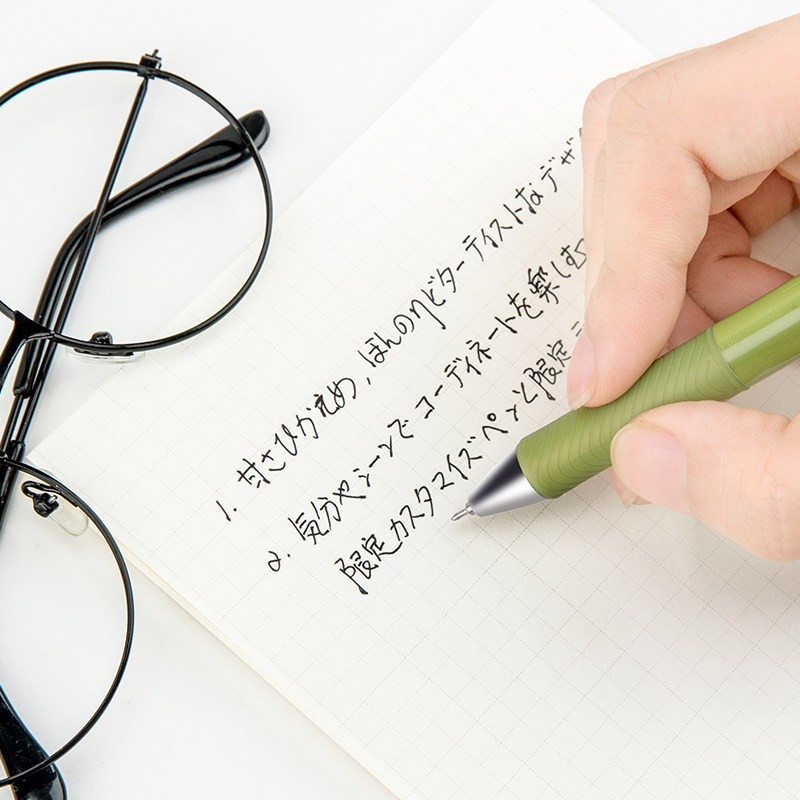 1. 甘さひかえめ,ほんのりビターテイストなデザ
2. 気分やシーンでコーディネートを楽しむ
限定カスタマイズペンと限定